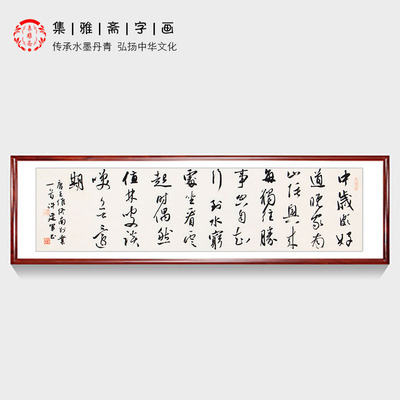 集雅斋字画
传承水墨丹青 弘扬中华文化
中歲頗好
道晚家南
山陲興来
每獨往勝
事空自知
行到水窮
處坐看雲
起時偶然
值林叟談
笑无還
期
唐王维终南别业
一首